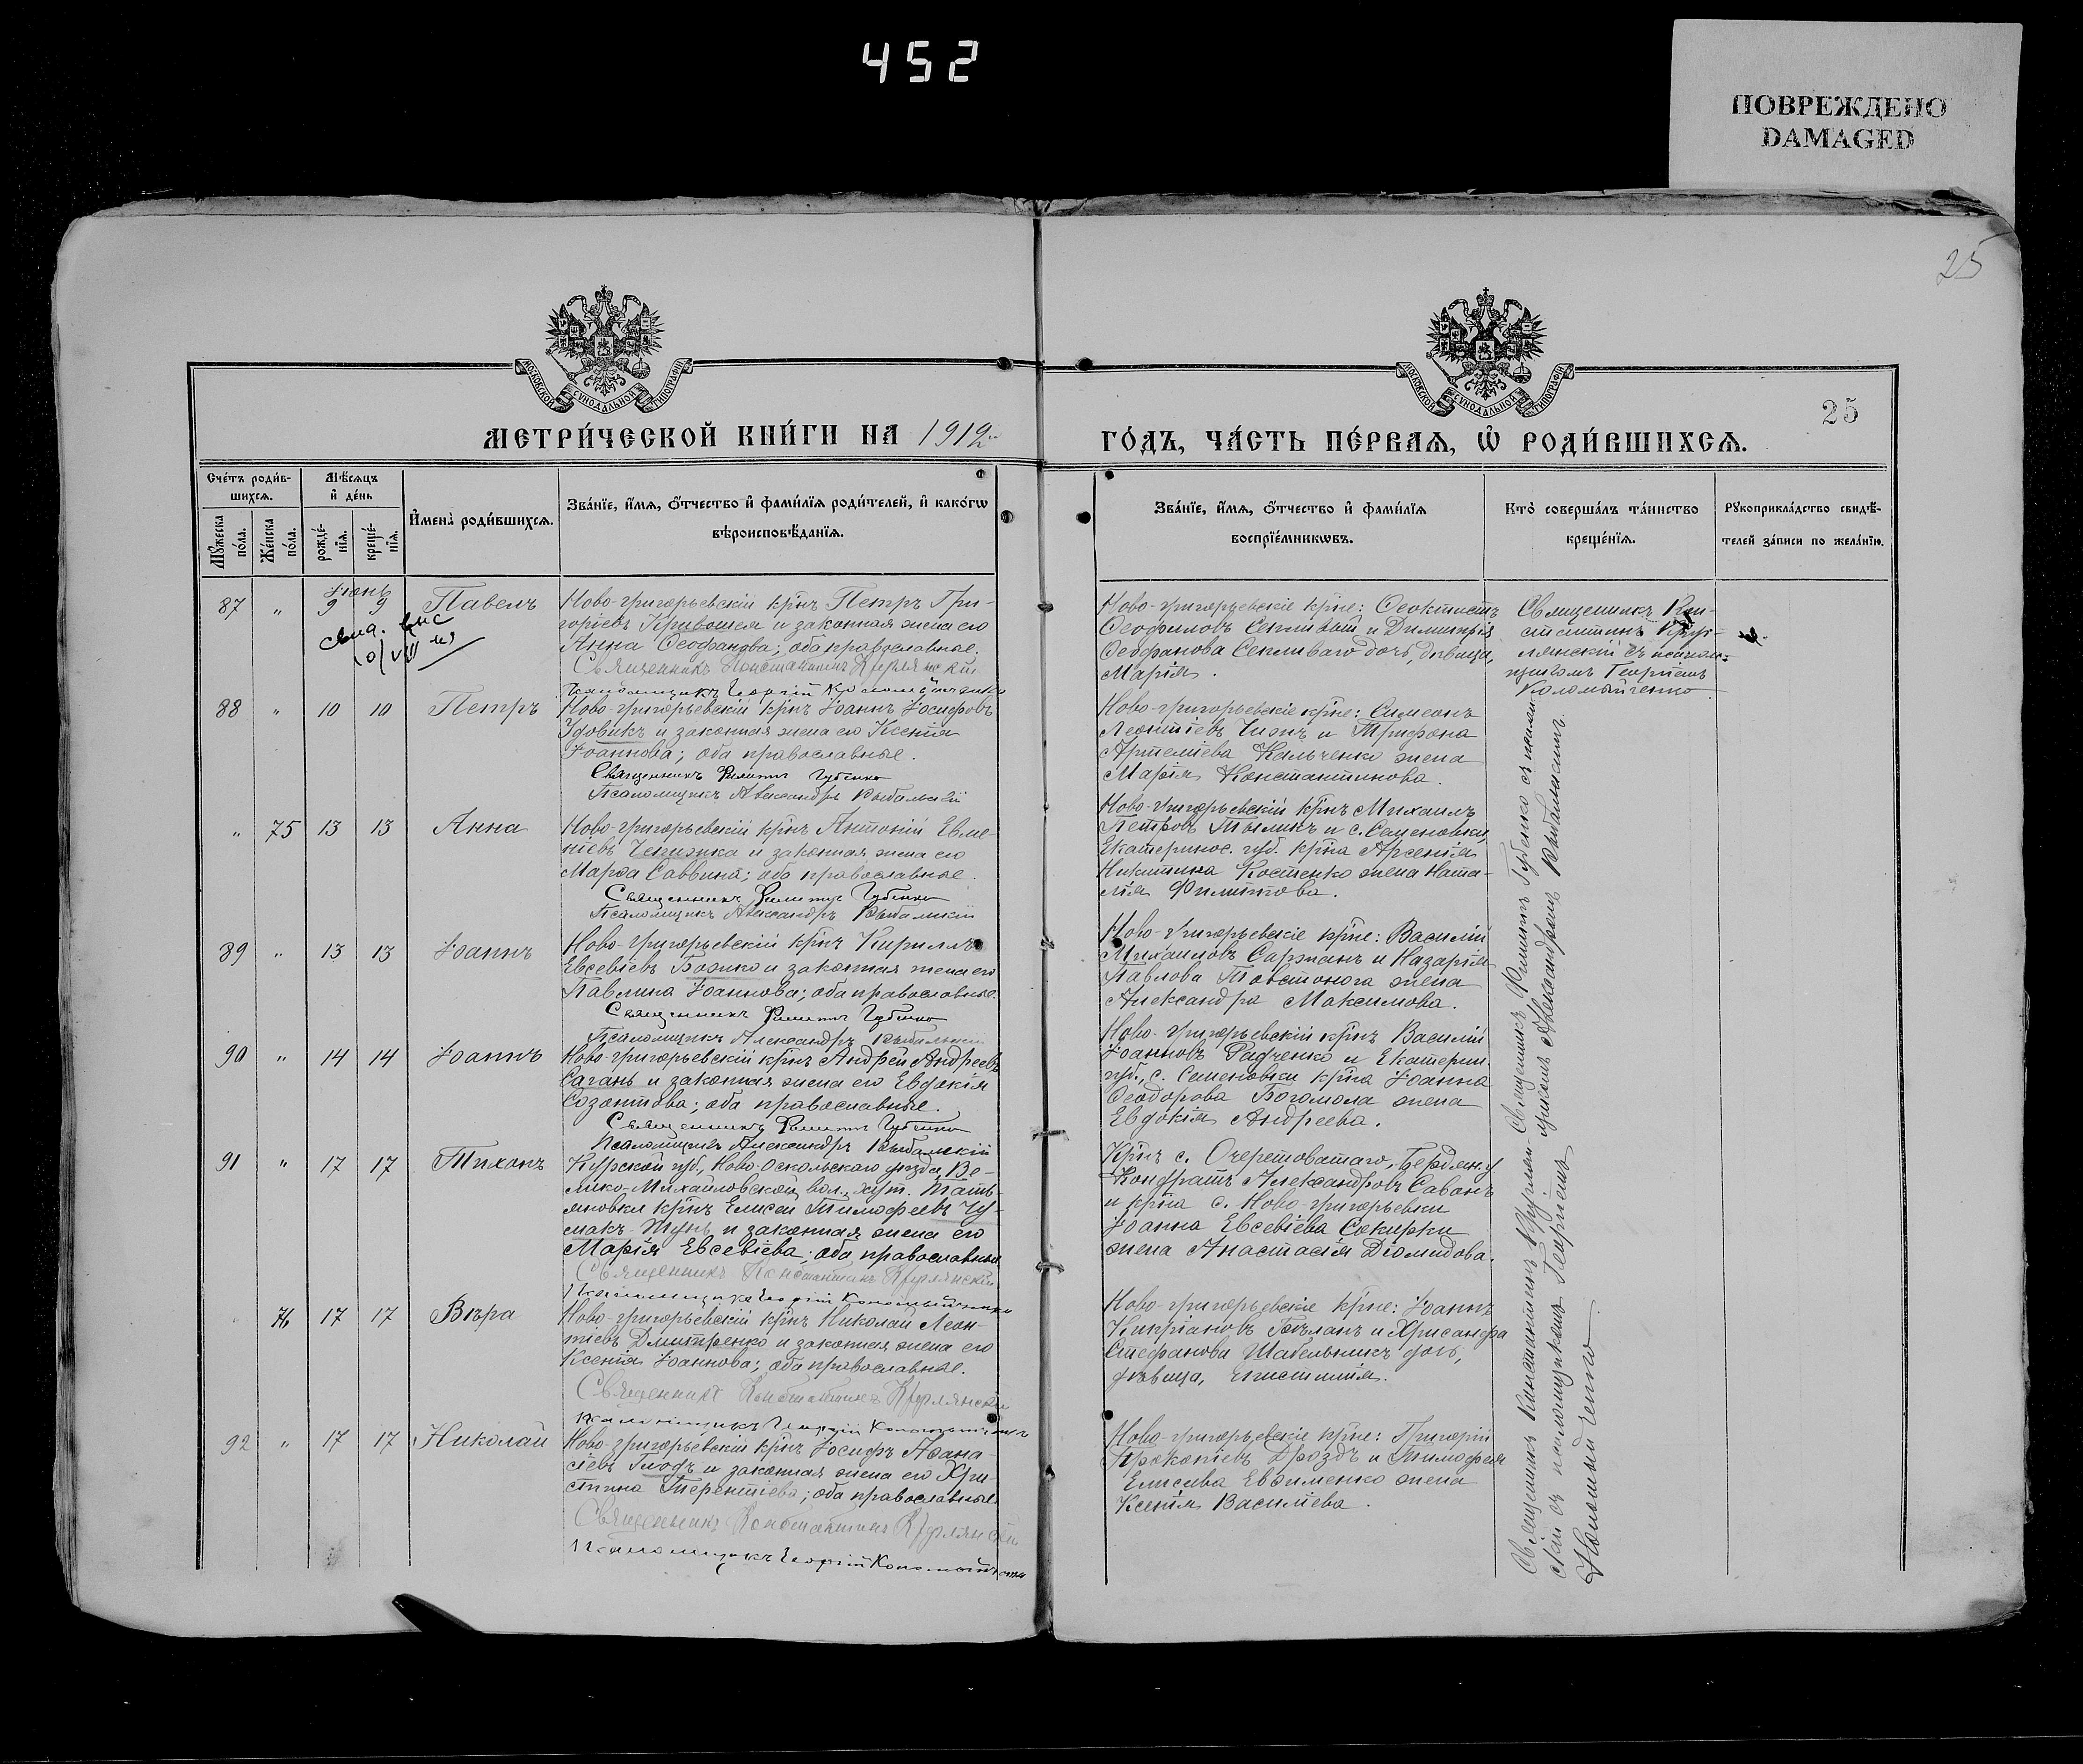 452
ПОВРЕЖДЕНО
DAMAGED
25
МОСКОВСКОЙ СУНОДАЛЬНОЙ ТИПОГРАФІИ
МОСКОВСКОЙ СУНОДАЛЬНОЙ ТИПОГРАФІИ
25
МЕТРИ́ЧЕСКОЙ КНИ́ГИ НА 1912
ГО́ДЪ, ЧА́СТЬ ПЕ́РВАѦ, Ѡ҆ РОДИ́ВШИХСѦ.
Сче́тъ роди́в-
шихсѧ.
Мꙋ́жеска
по́ла.
Же́нска
по́ла.
Мѣ́сѧцъ
и҆ де́нь
рожде́-
нїѧ.
креще́-
нїѧ.
И҆мена̀ роди́вшихсѧ.
Зва́нїе, и҆́мѧ, ѻ҆́тчество и҆ фами́лїѧ роди́телей, и҆ како́гѡ
вѣроисповѣ́данїѧ.
Зва́нїе, и҆́мѧ, ѻ҆́тчество и҆ фами́лїѧ
воспрїе́мникѡвъ.
Кто̀ соверша́лъ та́инство
креще́нїѧ.
Рꙋкоприкла́дство свидѣ́-
телей за́писи по жела́нїю.
Іюнь
87 " 9 9 Павелъ
Ново-григорьевскій крнъ Петръ Гри-
горіевъ Кривошея и законная жена его
Анна Ѳеофанова; оба православные.
Священникъ Константинъ Курлянскій
Псаломщикъ Георгій Коломыйченко
Ново-григорьевскіе крне: Ѳеоктистъ
Ѳеофиловъ Сепливый и Димитрія
Ѳеофанова Сепливаго дочь, дѣвица,
Марія.
Священникъ Кон-
стантинъ Кур-
лянскій съ псалом-
щикомъ Георгіемъ
Коломыйченко
88 " 10 10 Петръ
Ново-григорьевскій крнъ Іоаннъ Іосифовъ
Удовикъ и законная жена его Ксенія
Іоаннова; оба православные.
Священникъ Филиппъ Губенко
Псаломщикъ Александръ Рыбальскій
Ново-григорьевскіе крне: Симеонъ
Леонтіевъ Чижъ и Трифона
Артеміева Кальченко жена
Марія Константинова.
" 75 13 13 Анна
Ново-григорьевскій крнъ Антоній Евме-
ніевъ Чепижка и законная жена его
Марѳа Саввина; оба православные.
Священникъ Филиппъ Губенко
Псаломщикъ Александръ Рыбальскій
Ново-григорьевскій крнъ Михаилъ
Петровъ Тыликъ и с. Семеновки,
Екатеринос. губ. крна Арсенія
Никитина Костенко жена Ната-
лія Филиппова.
89 " 13 13 Іоаннъ
Ново-григорьевскій крнъ Кириллъ
Евсевіевъ Божко и законная жена его
Павлина Іоаннова; оба православные.
Священникъ Филиппъ Губенко
Псаломщикъ Александръ Рыбальскій
Ново-григорьевскіе крне: Василій
Михайловъ Саржанъ и Назарія
Павлова Товстонога жена
Александра Максимова.
90 " 14 14 Іоаннъ
Ново-григорьевскій крнъ Андрей Андреевъ
Сагань и законная жена его Евдокія
Созонтова; оба православные.
Священникъ Филиппъ Губенко
Псаломщикъ Александръ Рыбальскій
Ново-григорьевскій крнъ Василій
Іоанновъ Радченко и Екатерин.
губ., с. Семеновки крна Іоанна
Ѳеодорова Богомола жена
Евдокія Андреева.
91 " 17 17 Тихонъ
Курской губ., Ново-Оскольскаго уѣзда, Ве-
лико-Михайловской вол., хут. Тать-
яновки крнъ Елисей Тимоѳеевъ Чу-
макъ и законная жена его
Марія Евсевіева; оба православные
Священникъ Константинъ Курлянскій
Псаломщикъ Георгій Коломыйченко
Крнъ с. Очеретоватаго, Бердян. у.
Кондратъ Александровъ Саванъ
и крна с. Ново-григорьевки
Іоанна Евсевіева Сокирки
жена Анастасія Діомидова.
76 17 17 Вѣра
Ново-григорьевскій крнъ Николай Леон-
тіевъ Дмитренко и законная жена его
Ксенія Іоаннова; оба православные.
Священникъ Константинъ Курлянскій
Псаломщикъ Георгій Коломыйченко
Ново-григорьевскіе крне: Іоаннъ
Кипріановъ Бѣланъ и Хрисанфа
Стефанова Шабельникъ дочь,
дѣвица,
92 " 17 17 Николай
Ново-григорьевскій крнъ Іосифъ Аѳана-
сіевъ Глодъ и законная жена его Хри-
стина Терентіева; оба православные
Священникъ Константинъ Курлянскій
Псаломщикъ Георгій Коломыйченко
Ново-григорьевскіе крне: Григорій
Прокопіевъ Дроздъ и Тимоѳея
Елисеева Евфименко жена
Ксенія Васильева.
Священникъ Константинъ Курлян- Священникъ Филиппъ Губенко съ псалом-
скій съ псаломщикомъ Георгіемъ щикомъ Александромъ Рыбальскимъ.
Коломыйченко